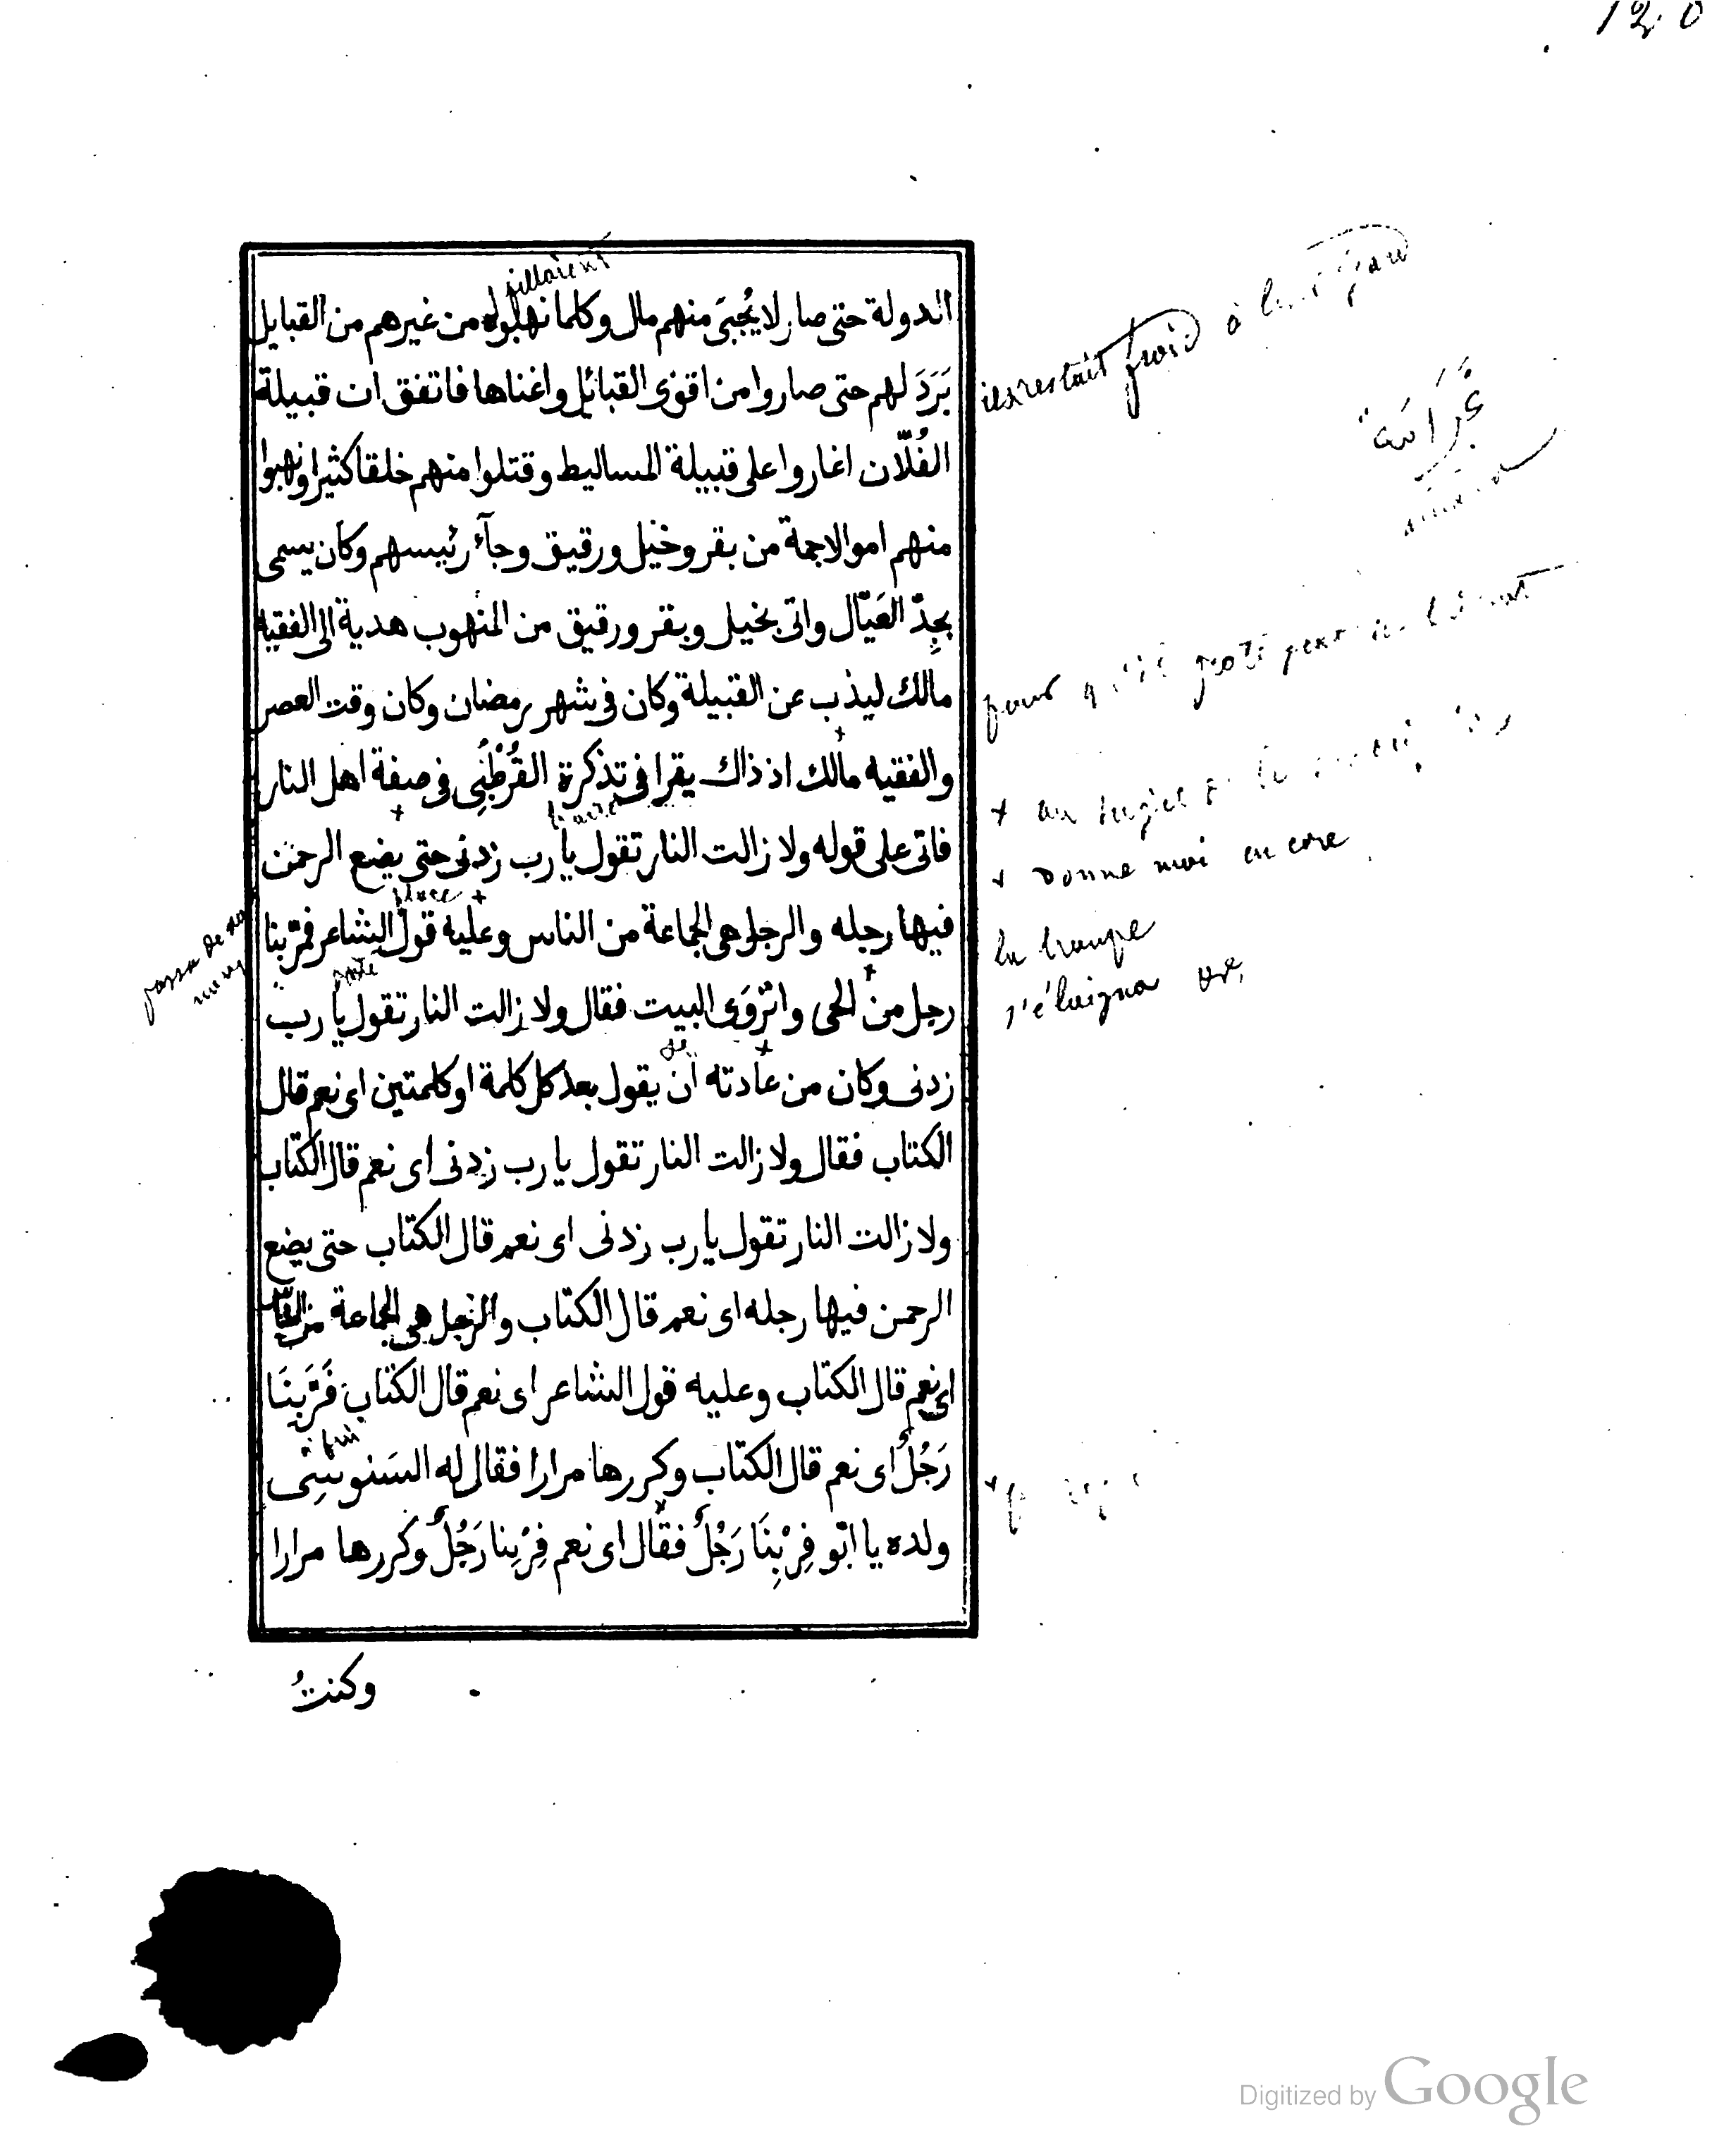 120
الدولة حتى صار لا يُجبَى منهم مال وكلما نهبوه من غيرهم من القبايل
بَرَدَ لهم حتى صاروا من اقوى القبائل واغناها فاتفق ان قبيلة
الفُلّان اغاروا على قبيلة المساليط وقتلوا منهم خلقا كثيرا ونهبوا
منهم اموالا جمة من بقر وخيل ورقيق وجآء رئيسهم وكان يسمى
بجِدّ العَيّال واتى بخيل وبقر ورقيق من المنهوب هدية الى الفقيه
مالك ليذب عن القبيلة وكان فى شهر رمضان وكان وقت العصر
والفقيه مالك اذ ذاك يقرا فى تذكرة القُرْطُبِى فى صفة اهل النار
فاتى على قوله ولا زالت النار تقول يا رب زدنى حتى يضع الرحمن
فيها رجله والرجل هى الجماعة من الناس وعليه قول الشاعر فمرّ بنا
رجل من الحى وانْزَوَى البيت فقال ولا زالت النار تقول يا رب
زدنى وكان من عادته ان يقول بعد كل كلمة او كلمتين اى نعم قال
الكتاب فقال ولا زالت النار تقول يا رب زدنى اى نعم قال الكتاب
ولا زالت النار تقول يا رب زدنى اى نعم قال الكتاب حتى يضع
الرحمن فيها رجله اى نعم قال الكتاب والرجل هى الجماعة من
اى نعم قال الكتاب وعليه قول الشاعر اى نعم قال الكتاب فَمَرَّ بِنَا
رَجُلٌ اى نعم قال الكتاب وكررها مرارا فقال له السَنوسِى
ولده يا ابّو فِرْبِنَا رَجُلٌ فقال اى نعم فِرْبِنا رَجُلٌ وكررها مرارا
وكنتُ
pillaient
restait froid à
pour
+ au sujet
+ donne moi encore
la troupe
s'éloigna
passa de
Digitized by Google